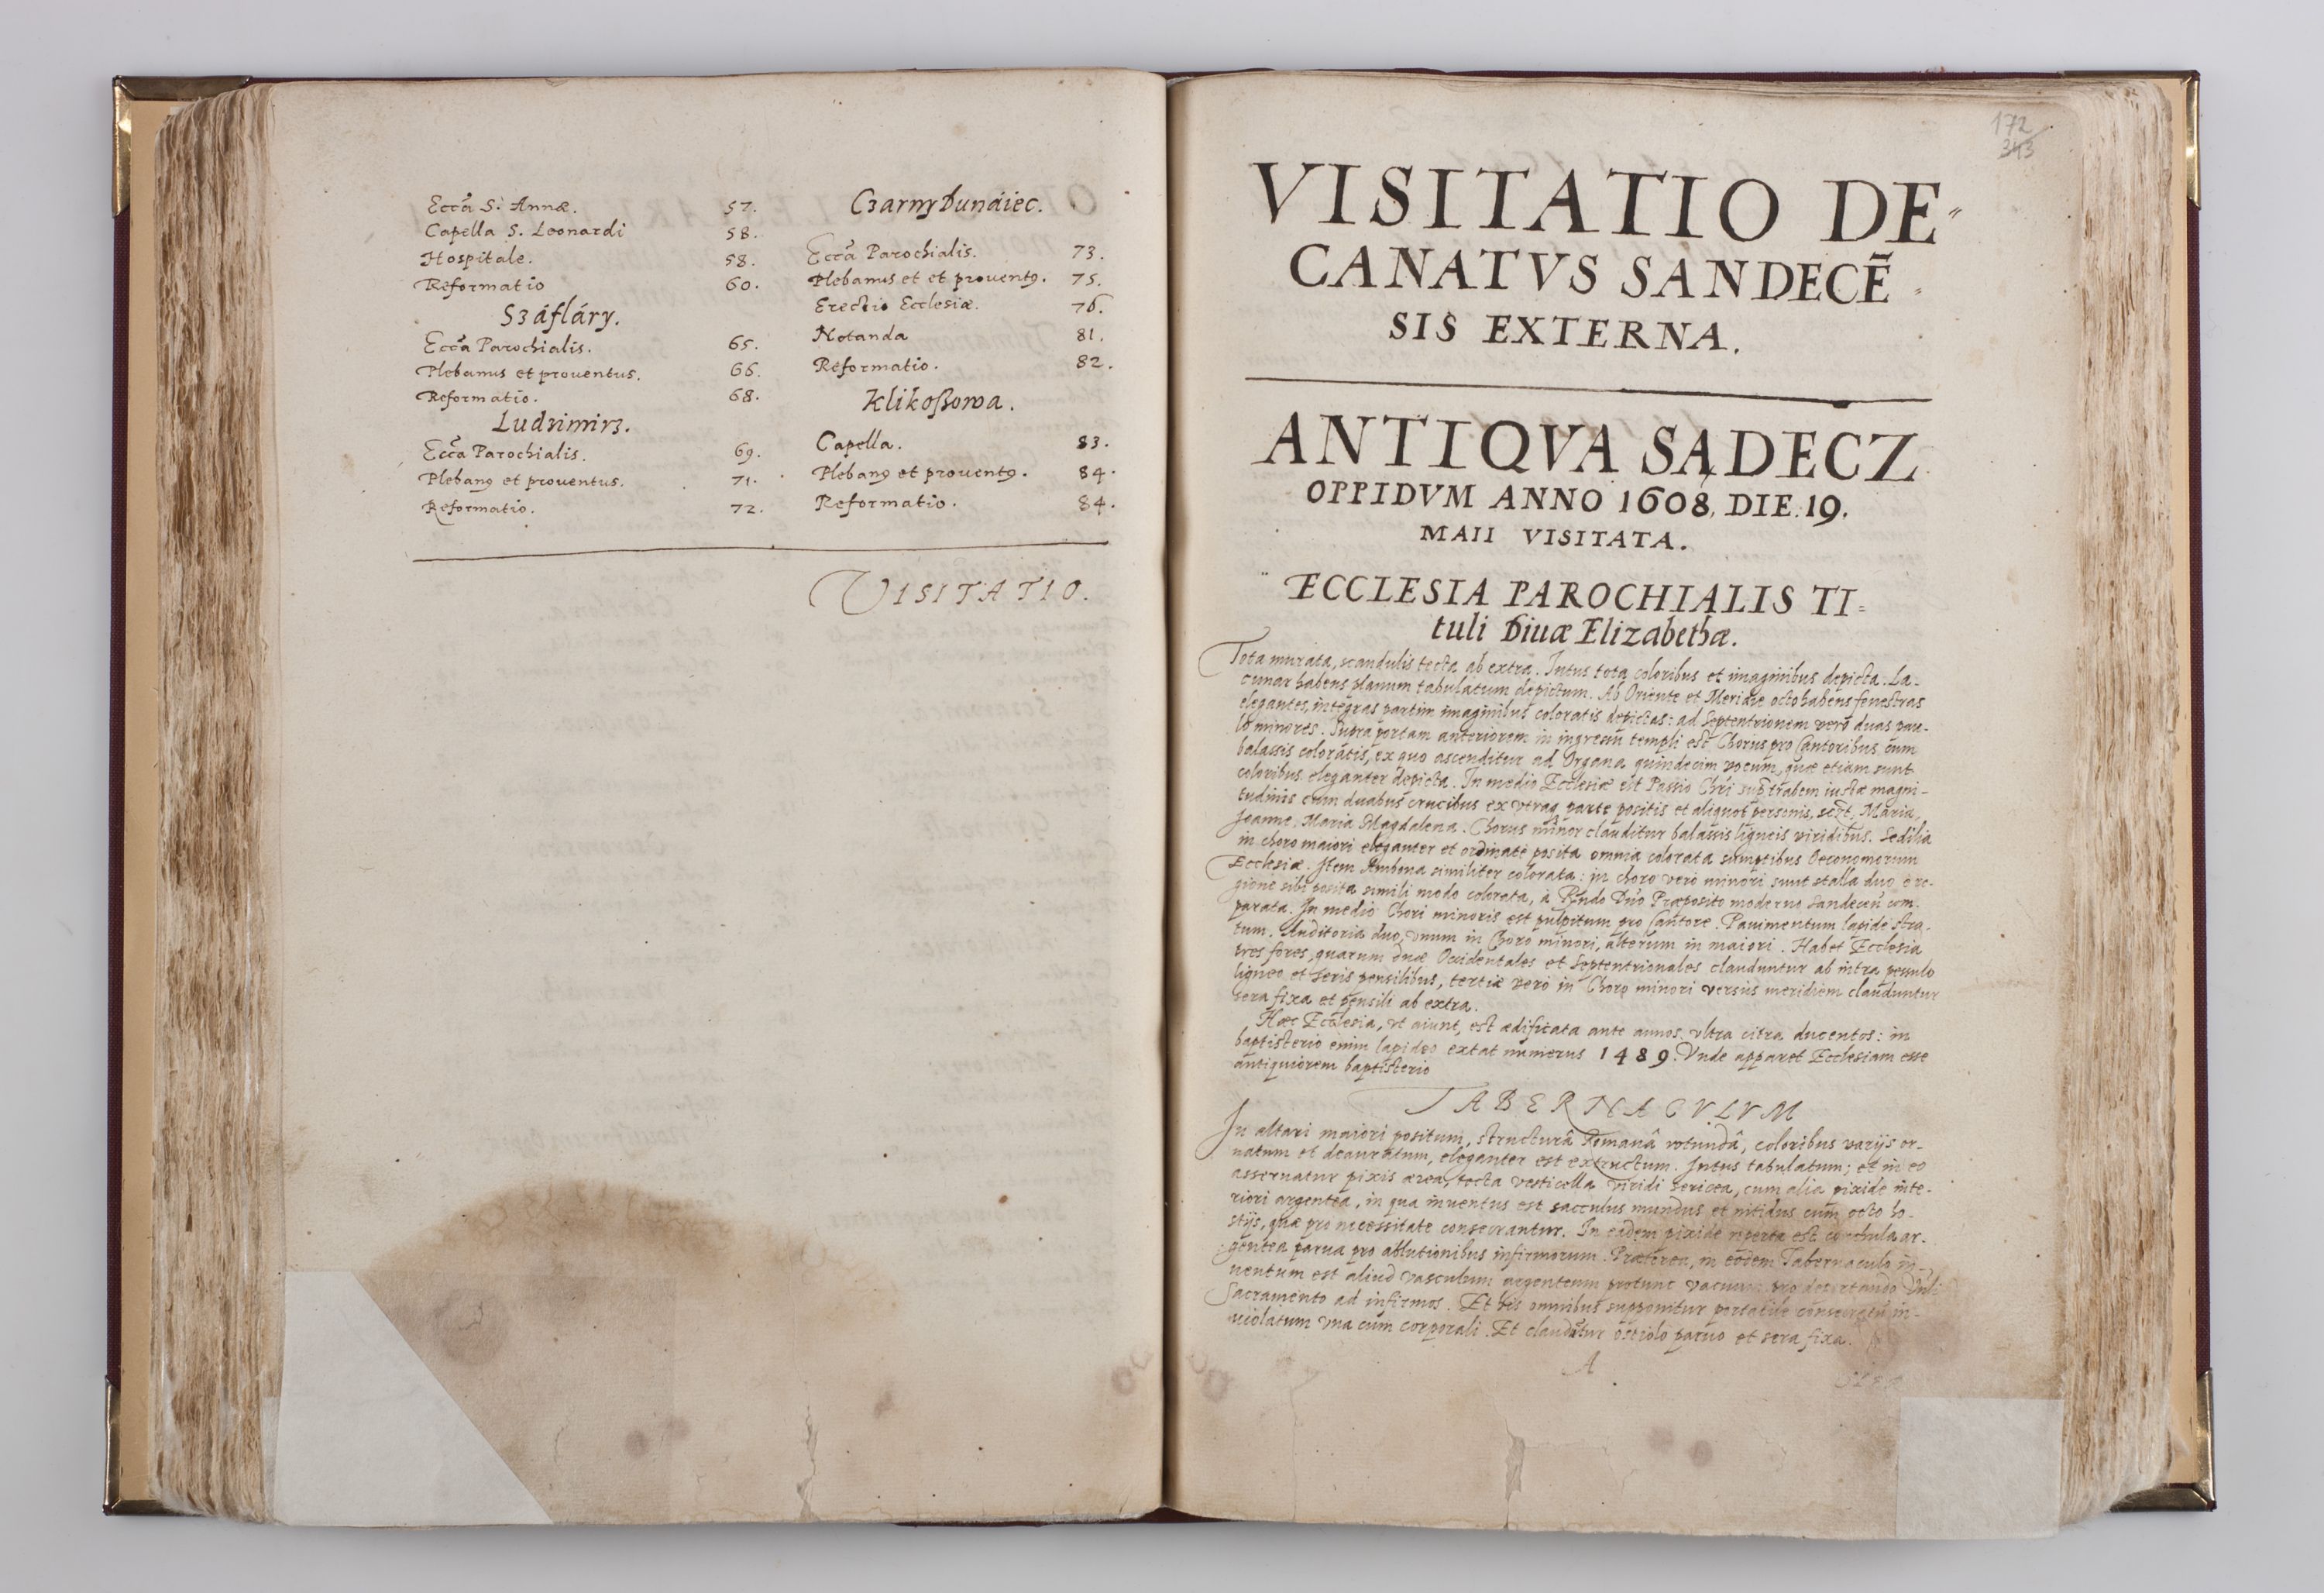 Eccã S. Annæ. 57.
Capella S. Leonardi 58.
Hospitale. 58.
Reformatio 60.
Száfláry.
Eccã Parochialis. 65.
Plebanus et prouentus. 66.
Reformatio. 68.
Ludzimirz.
Eccã Parochialis. 69.
Plebanꝰ et prouentus. 71.
Reformatio. 72.
Czarny Dunáiec.
Eccã Parochialis. 73.
Plebanus et et prouentꝰ. 75.
Erectio Ecclesiæ. 76.
Notanda 81.
Reformatio. 82.
Klikoßowa.
Capella. 83.
Plebanꝰ et prouentꝰ. 84.
Reformatio. 84.
VISITATIO.
172
343
VISITATIO DE⸗
CANATVS SANDECẼ⸗
SIS EXTERNA.
ANTIQVA SĄDECZ
OPPIDVM ANNO 1608, DIE. 19.
MAII VISITATA.
ECCLESIA PAROCHIALIS TI⸗
tuli Diuæ Elizabethæ.
Tota murata, scandulis tecta ab extra. Intus tota coloribus et imaginibus depicta. La-
cunar habens planum tabulatum depictum. Ab Oriente et Meridie octo habens fenestras
elegantes, integras partim imaginibus coloratis depictas: ad Septentrionem verò duas pau-
lò minores. Supra portam anteriorem in ingressu templi est Chorus pro Cantoribus cum
balassis coloratis, ex quo ascenditur ad Organa quindecim vocum, quæ etiam sunt
coloribus eleganter depicta. In medio Ecclesiæ est Passio Chri supra trabem iustæ magni-
tudinis cum duabus crucibus ex vtraq parte positis et aliquot personis, sclt, Maria,
Joanne, Maria Magdalena. Chorus minor clauditur balassis ligneis viridibus. Sedilia
in choro maiori eleganter et ordinatè posita omnia colorata sumptibus Oeconomorum
Ecclesiæ. Item Ambona similiter colorata: in choro verò minori sunt stalla duo è re-
gione sibi posita simili modo colorata, à Rndo Dño Præposito moderno Sandecen̄ com-
parata. In medio Chori minoris est pulpitum pro Cantore. Pauimentum lapide stra-
tum. Auditoria duo, vnum in Choro minori, alterum in maiori. Habet Ecclesia
tres fores, quarum duæ Occidentales et Septentrionales clauduntur ab intra pessulo
ligneo et seris pensilibus, tertiæ verò in Choro minori versùs meridiem clauduntur
sera fixa et pensili ab extra.
Hæc Ecclesia, vt aiunt, est ædificata ante annos vltra citra ducentos: in
baptisterio enim lapideo extat numerus 1489. Vnde apparet Ecclesiam esse
antiquiorem baptisterio
TABERNACVLVM
In altari maiori positum, structurâ Romanâ rotundâ, coloribus varijs or-
natum et deauratum, eleganter est extructum. Intus tabulatum; et in eo
asseruatur pixis ærea, tecta vesticella viridi sericea, cum alia pixide inte-
riori argentea, in qua inuentus est sacculus mundus et nitidus cum octo ho-
stijs, quæ pro necessitate conseruantur. In eadem pixide reperta est conchula ar-
gentea parua pro ablutionibus infirmorum. Præterea, in eodem Tabernaculo in-
uentum est aliud vasculum argenteum protunc vacuum pro deportando
Sacramento ad infirmos. Et his omnibus supponitur portatile consecratū in-
uiolatum vna cum corporali. Et clauditur ostiolo paruo et sera fixa.
A